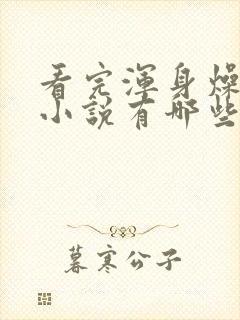 看完浑身燥
小说有哪些
暮寒公子